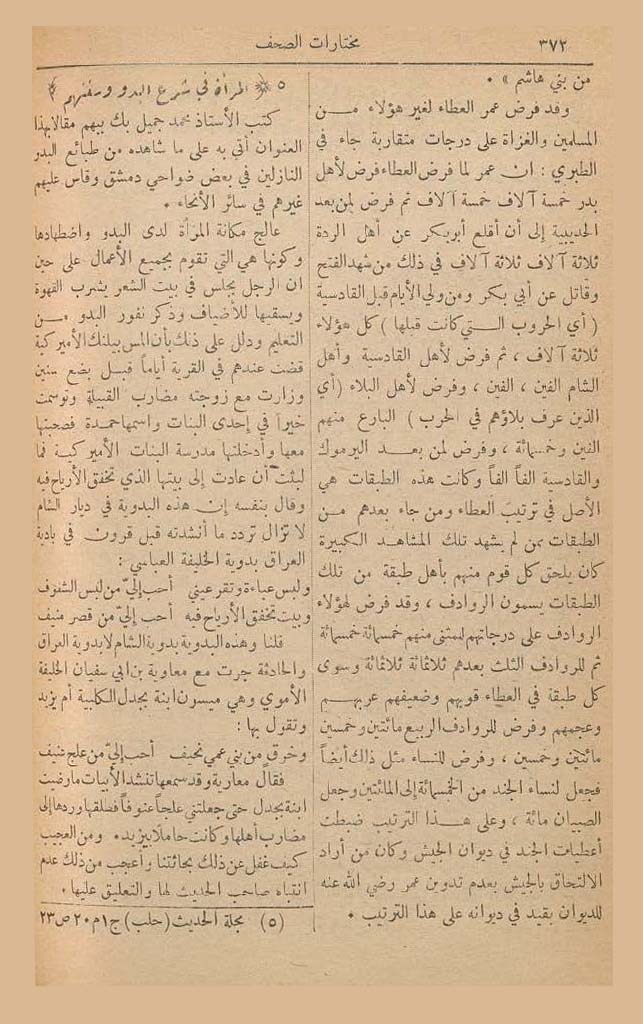 ٣٧٢
مختارات الصحف
من بني هاشم » .
وقد فرض عمر العطاء لغير هؤلاء من
المسلمين والغزاة على درجات متقاربة جاء في
الطبري : ان عمر لما فرض العطاء فرض لأهل
بدر خمسة آلاف خمسة آلاف ثم فرض لمن بعد
الحديبية إلى أن أقلع أبو بكر عن أهل الردة
ثلاثة آلاف ثلاثة آلاف في ذلك من شهد الفتح
وقاتل عن أبي بكر ومن ولي الأيام قبل القادسية
( أي الحروب التي كانت قبلها ) كل هؤلاء
ثلاثة آلاف ، ثم فرض لأهل القادسية وأهل
الشام الفين ، الفين ، وفرض لأهل البلاء ( أي
الذين عرف بلاؤهم في الحرب ) البارع منهم
الفين وخمسمائة ، وفرض لمن بعد اليرموك
والقادسية الفاً الفاً وكانت هذه الطبقات هي
الأصل في ترتيب العطاء ومن جاء بعدهم من
الطبقات ممن لم يشهد تلك المشاهد الكبيرة
كان يلحق كل قوم منهم بأهل طبقة من تلك
الطبقات يسمون الروادف ، وقد فرض لهؤلاء
الروادف على درجاتهم للمثنى منهم خمسمائة خمسمائة
ثم للروادف الثلث بعدهم ثلاثمائة ثلاثمائة وسوى
كل طبقة في العطاء قويهم وضعيفهم عربهم
وعجمهم وفرض للروادف الربيع مائتين وخمسين
مائتين وخمسين ، وفرض للنساء مثل ذلك أيضاً
فجعل لنساء الجند من الخمسمائة إلى المائتين وجعل
الصبيان مائة ، وعلى هذا الترتيب ضبطت
أعطيات الجند في ديوان الجيش وكان من أراد
الالتحاق بالجيش بعدم تدوين عمر رضي الله عنه
للديوان يقيد في ديوانه على هذا الترتيب .
٥ ﴿ المرأة في شرع البدو وسننهم ﴾
كتب الأستاذ محمد جميل بك بيهم مقالا بهذا
العنوان أتي به على ما شاهده من طبائع البدو
النازلين في بعض ضواحي دمشق وقاس عليهم
غيرهم في سائر الأنحاء .
عالج مكانة المرأة لدى البدو واضطهادها
وكونها هي التي تقوم بجميع الأعمال على حين
ان الرجل يجلس في بيت الشعر يشرب القهوة
ويسقيها للأضياف وذكر نفور البدو من
التعليم ودلل على ذلك بأن المس بيلنك الأميركية
قضت عندهم في القرية أياماً قبل بضع سنين
وزارت مع زوجته مضارب القبيلة وتوسمت
خيراً في إحدى البنات واسمها حمدة فصحبتها
معها وأدخلتها مدرسة البنات الأميركية فما
لبثت أن عادت إلى بيتها الذي تخفق الأرياح فيه
وقال بنفسه إن هذه البدوية في ديار الشام
لا تزال تردد ما أنشدته قبل قرون في بادية
العراق بدوية الخليفة العباسي :
ولبس عباءة وتقر عيني أحب إليّ من لبس الشفوف
وبيت تخفق الأرياح فيه أحب إليّ من قصر منيف
قلنا وهذه البدوية بدوية الشام لا بدوية العراق
والحادثة جرت مع معاوية بن ابي سفيان الخليفة
الأموي وهي ميسون ابنة بجدل الكلبية أم يزيد
وتقول بها :
وخرق من بني عمي نحيف أحب إليّ من علج عنيف
فقال معاوية وقد سمعها تنشد الأبيات مارضيت
ابنة بجدل حتى جعلتني علجاً عنوفاً فطلقها وردها إلى
مضارب أهلها وكانت حاملا بيزيد . ومن العجيب
كيف غفل عن ذلك بحاثتنا وأعجب من ذلك عدم
انتباه صاحب الحديث لها والتعليق عليها .
(٥) مجلة الحديث ( حلب ) ج ١ م ٢٠ ص ٢٣